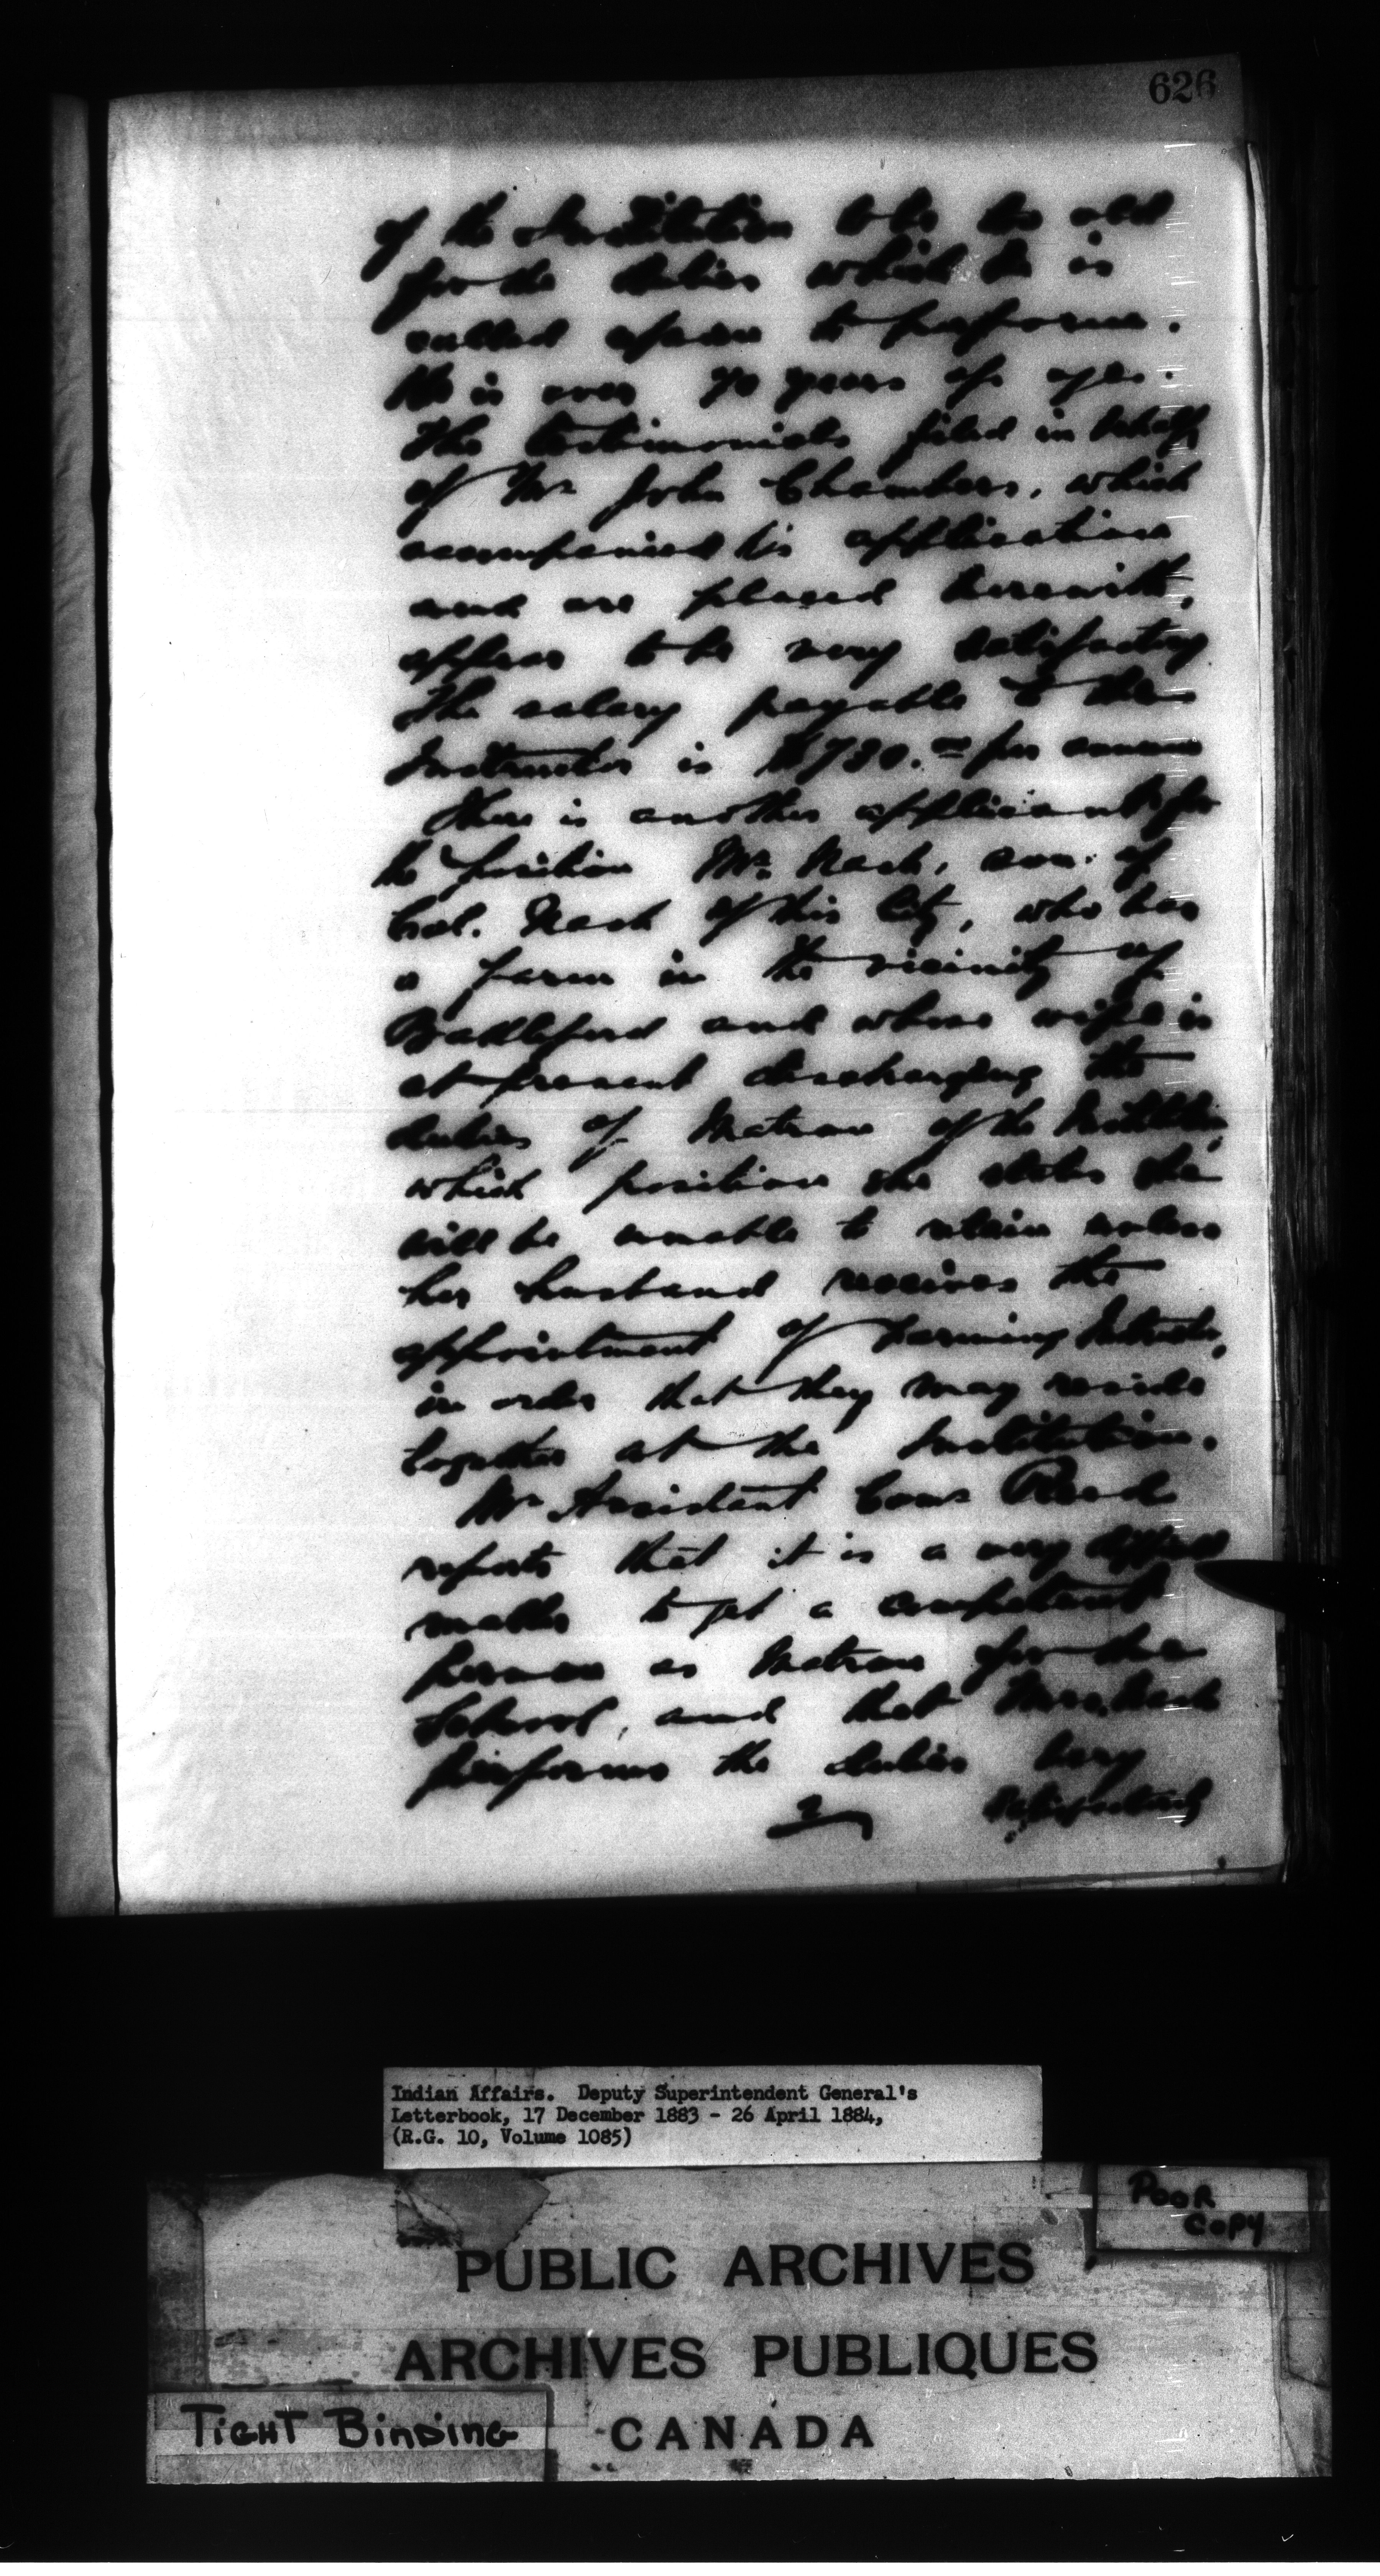 626
of the Institution to be too old
for the duties which he is
called upon to perform.
He is over 70 years of age.
The testimonials filed in behalf
of Mr John Chambers, which
accompanied his application
and are placed herewith,
appear to be very satisfactory
The salary payable to the
Instructor is $730.00 per annum
There is another applicant for
the position Mr. Nash, son of
Col. Nash of this City, who has
a farm in the vicinity of
Battleford and whose wife is
at present discharging the
duties of Matron of the Institution,
which position she states she
will be unable to retain unless
her husband receives the
appointment of Farming Instructor,
in order that they may reside
together at the Institution.
Mr Assistant Comr Reed
reports that it is a very difficult
matter to get a competent
person as Matron for the
School, and that Mrs. Nash
performs the duties very
2 satisfactorily
Indian Affairs. Deputy Superintendent General's
Letterbook, 17 December 1883 - 26 April 1884,
(R.G. 10, Volume 1085)
POOR
COPY
PUBLIC ARCHIVES
ARCHIVES PUBLIQUES
CANADA
TIGHT BINDING